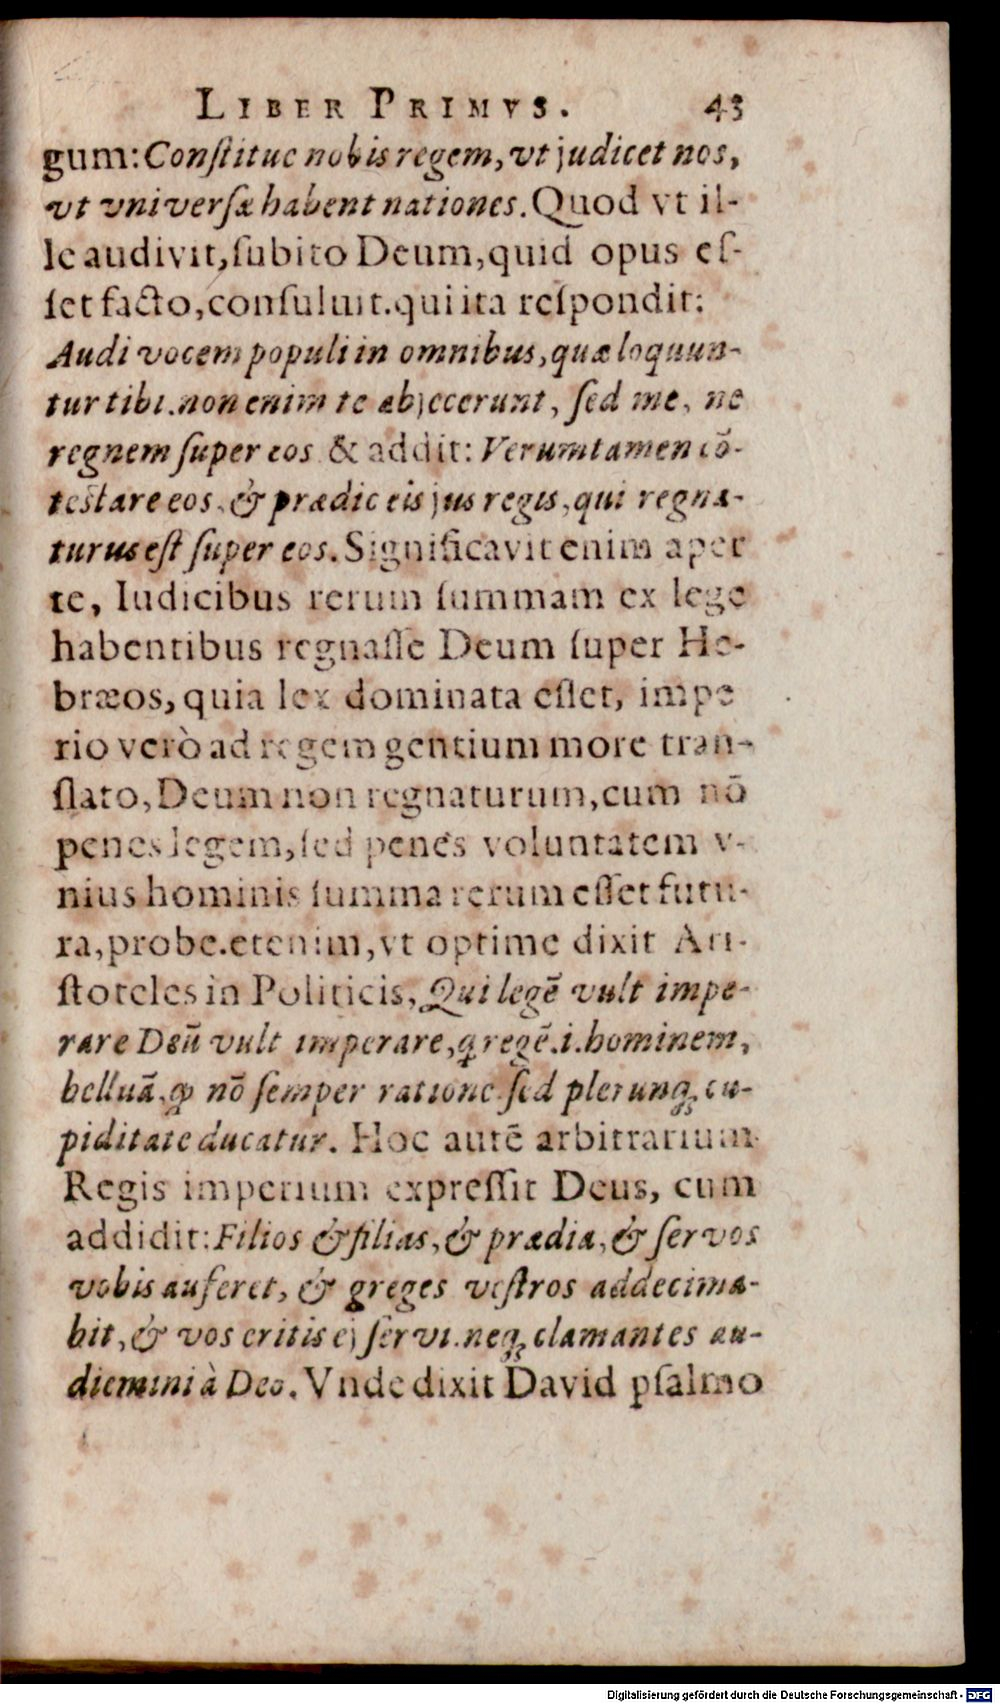 LIBER PRIMVS. 43
gum: Conſtitue nobis regem, vt judicet nos,
vt vniverſæ habent nationes. Quod vt il-
le audivit, ſubito Deum, quid opus eſ-
ſet facto, conſuluit. qui ita reſpondit:
Audi vocem populi in omnibus, quæ loquun-
tur tibi. non enim te abjecerunt, ſed me, ne
regnem ſuper eos & addit: Verumtamen cō-
teſtare eos, & prædic eis jus regis, qui regna-
turus eſt ſuper eos. Significavit enim aper
te, Iudicibus rerum ſummam ex lege
habentibus regnaſſe Deum ſuper He-
bræos, quia lex dominata eſſet, impe
rio verò ad regem gentium more tran-
ſlato, Deum non regnaturum, cum nō
penes legem, ſed penes voluntatem v-
nius hominis ſumma rerum eſſet futu-
ra, probe. etenim, vt optime dixit Ari-
ſtoteles in Politicis, Qui legē vult impe-
rare Deū vult imperare, q̃ regē .i. hominem,
belluā, ꝙ nō ſemper ratione ſed plerunq; cu-
piditate ducatur. Hoc autē arbitrarium
Regis imperium expreſſit Deus, cum
addidit: Filios & filias, & prædia, & ſervos
vobis auferet, & greges veſtros addecima-
bit, & vos eritis ej ſervi. neq; clamantes au-
diemini à Deo. Vnde dixit David pſalmo
Digitalisierung gefördert durch die Deutsche Forschungsgemeinschaft - DFG